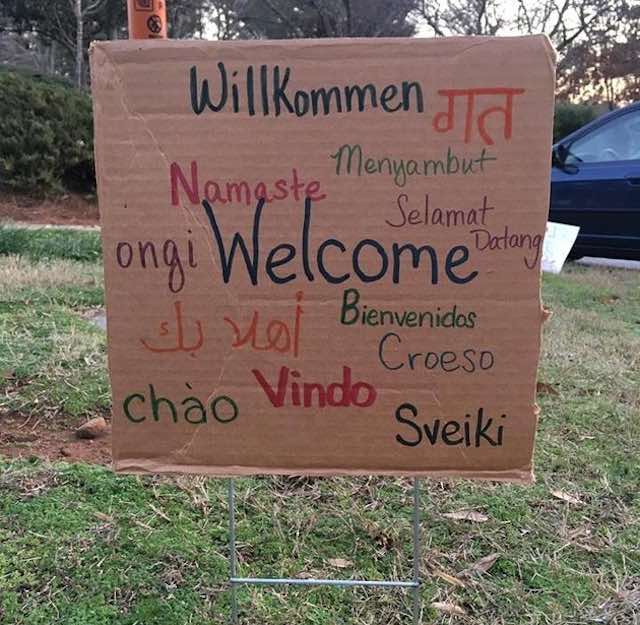 Willkommen
गत
Menyambut
Namaste
Selamat
Datang
ongi
Welcome
أهلا بك
Bienvenidos
Croeso
chào
Vindo
Sveiki